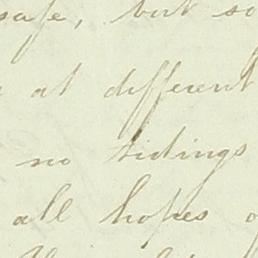 safe, but so
at different
no tidings
all hopes of